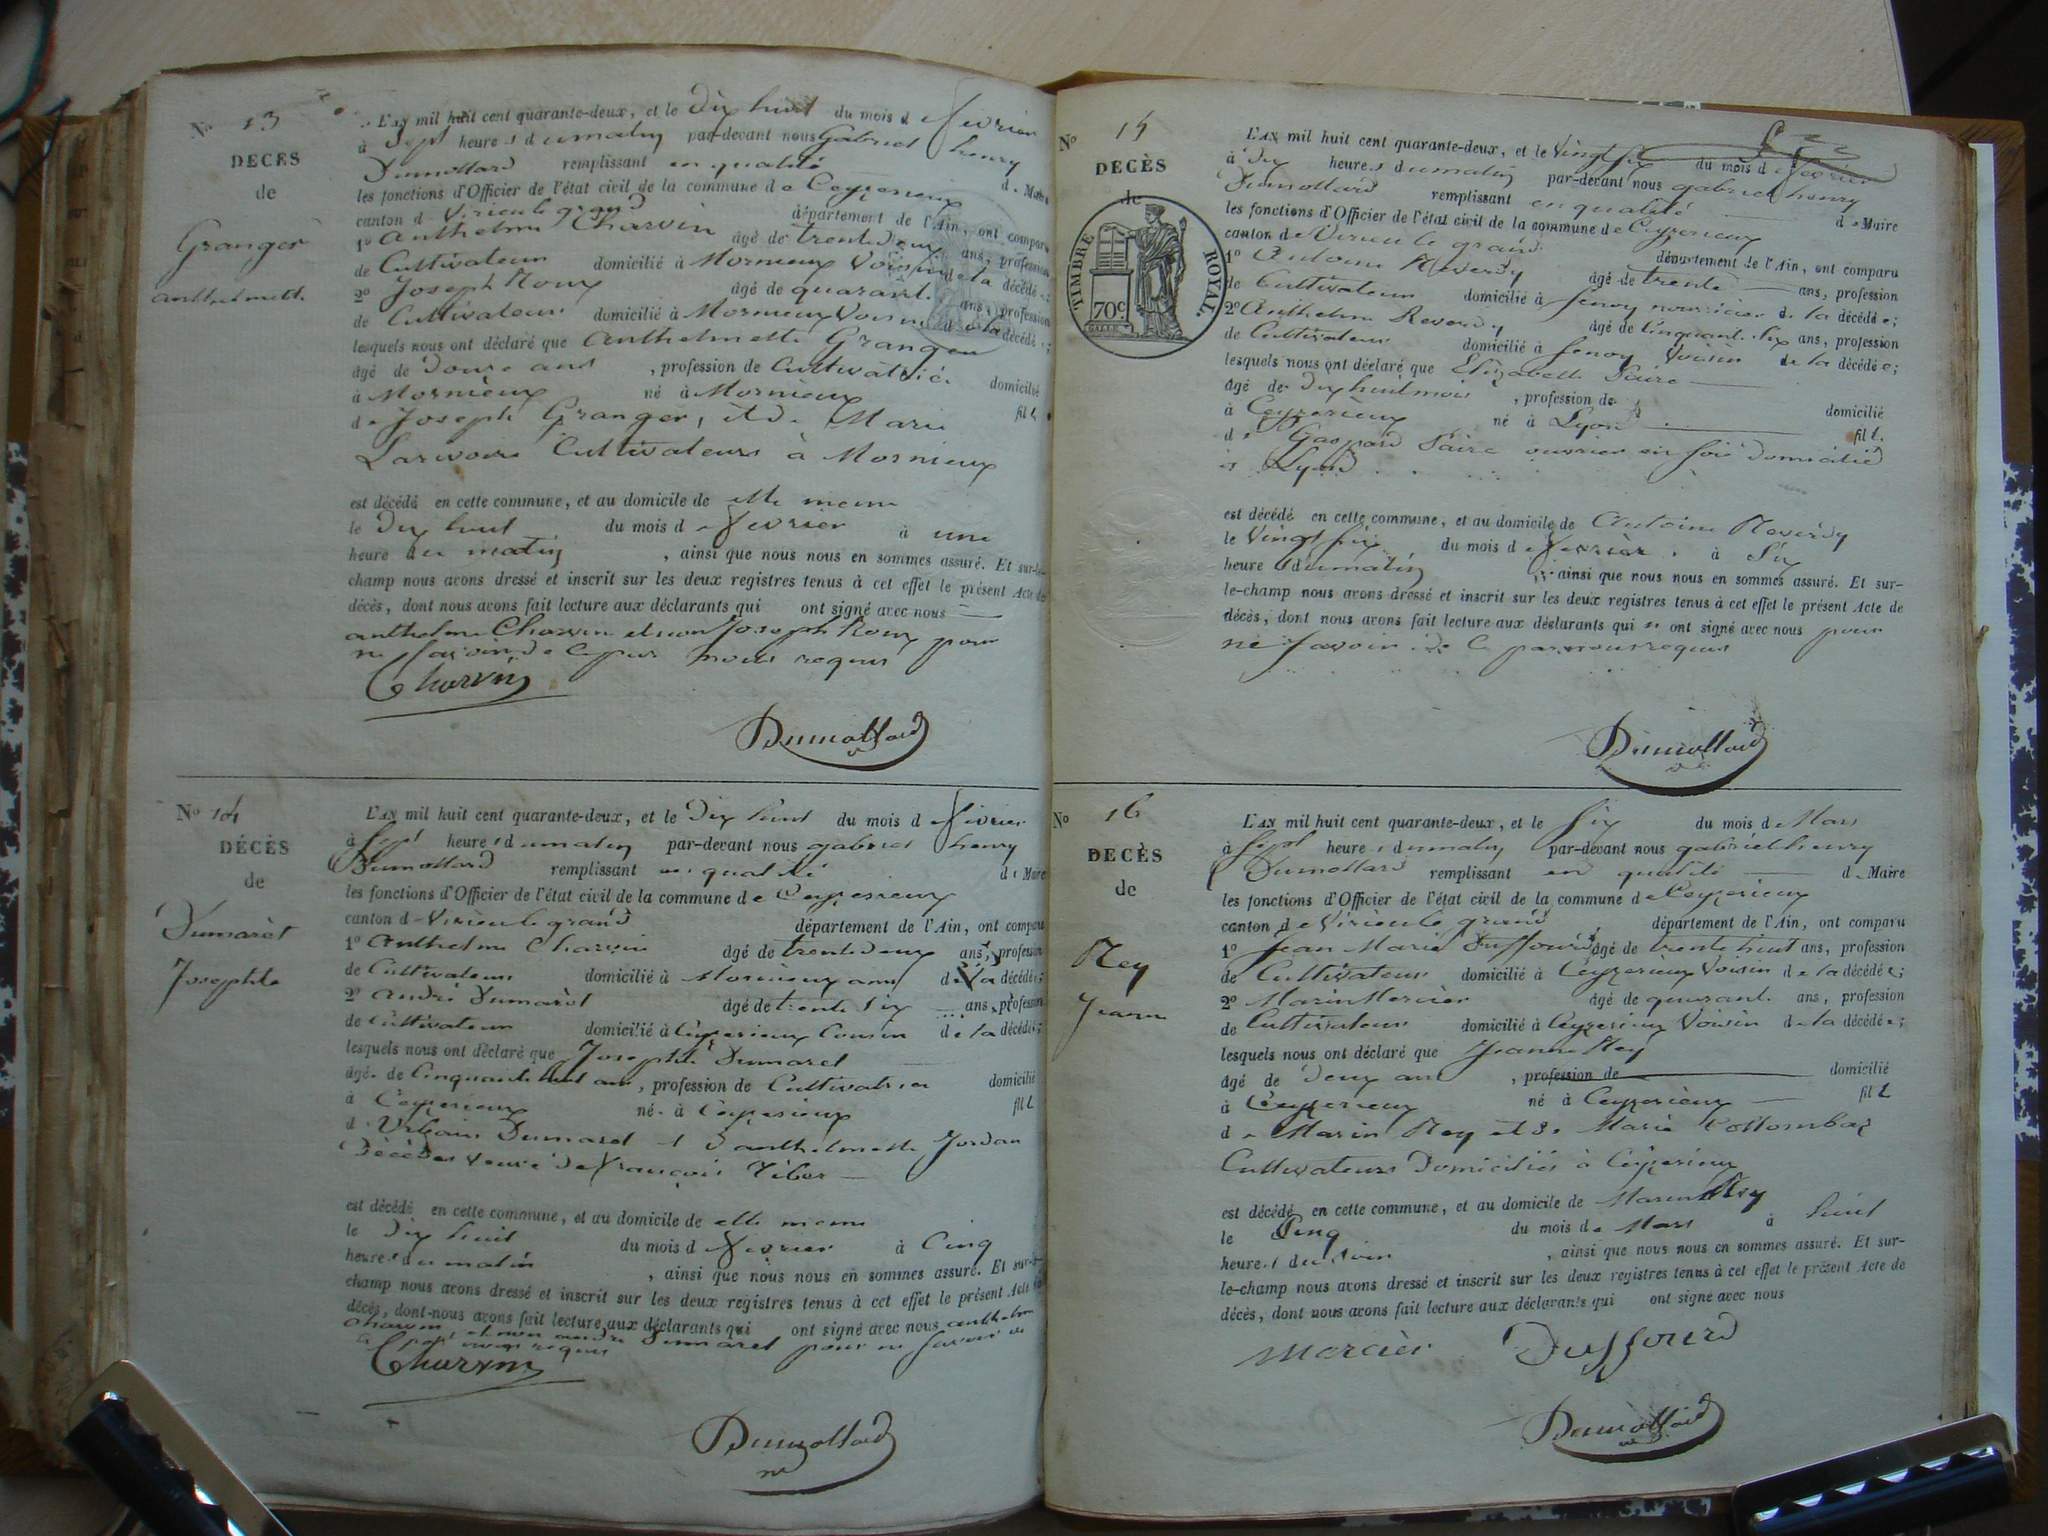 No 13
DÉCÈS
de
Granger
anthelmette
L'AN mil huit cent quarante-deux, et le Dix huit du mois d e fevrier
à Sept heure s d umatin par-devant nous Gabriel henry
Dumollard remplissant en qualité d e Maire
les fonctions d'Officier de l'état civil de la commune d e Ceyzerieux
canton d e Virieu le grand département de l'Ain, ont comparu
1o Anthelme Charvin âgé de trente deux ans, profession
de Cultivateur domicilié à Mornieux Voisin d e la décédé e;
2o Joseph Roux âgé de quarante ans, profession
de Cultivateur domicilié à Mornieux Voisin d e la décédé e;
lesquels nous ont déclaré que Anthelmette Granger
âgé de Douze ans, profession de Cultivatrice domicilié
à Mornieux né à Mornieux fil l
d e Joseph Granger, et de Marie
Larivoire Cultivateurs à Mornieux
est décédé en cette commune, et au domicile de elle meme
le Dix huit du mois d e fevrier à une
heure du matin, ainsi que nous nous en sommes assuré. Et sur-le-
champ nous avons dressé et inscrit sur les deux registres tenus à cet effet le présent Acte de
décès, dont nous avons fait lecture aux déclarants qui ont signé avec nous
anthelme Charvin et non Joseph Roux pour
ne savoir de ce par nous requis
Charvin
Dumollard
No 14
DÉCÈS
de
Dumarèt
Josephte
L'AN mil huit cent quarante-deux, et le Dix huit du mois d e fevrier
à Sept heure s d umatin par-devant nous gabriel henry
Dumollard remplissant en qualité d e Maire
les fonctions d'Officier de l'état civil de la commune d e Ceyzerieux
canton d e Virieu le grand département de l'Ain, ont comparu
1o Anthelme Charvin âgé de trente deux ans, profession
de Cultivateur domicilié à Mornieux ami d e la décédé e;
2o André Dumarèt âgé de trente Six ans, profession
de Cultivateur domicilié à Ceyzerieux Cousin d e la décédé e;
lesquels nous ont déclaré que Josephte Dumaret
âgé e de Cinquante huit ans, profession de Cultivatrice domicilié
à Ceyzerieux né e à Ceyzerieux fil l
d Urbain Dumaret et d anthelmette Jordan
Décédés veuve de François Tiber
est décédé en cette commune, et au domicile de elle meme
le Dix huit du mois d e fevrier à Cinq
heure s du matin, ainsi que nous nous en sommes assuré. Et sur-le-
champ nous avons dressé et inscrit sur les deux registres tenus à cet effet le présent Acte de
décès, dont nous avons fait lecture aux déclarants qui ont signé avec nous anthelme
Charvin et non andré Dumaret pour ne savoir de
ce par nous requis
Charvin
Dumollard
No 15
DÉCÈS
de
TIMBRE ROYAL
70c
L'AN mil huit cent quarante-deux, et le Vingt Six du mois d e fevrier
à Dix heure s d umatin par-devant nous gabriel henry
Dumollard remplissant en qualité d e Maire
les fonctions d'Officier de l'état civil de la commune d e Ceyzerieux
canton d e Virieu le grand département de l'Ain, ont comparu
1o Antoine Reverdy âgé de trente ans, profession
de Cultivateur domicilié à Senoy nourricier d e la décédé e;
2o Anthelme Reverdy âgé de Cinquante Six ans, profession
de Cultivateur domicilié à Senoy Voisin d e la décédé e;
lesquels nous ont déclaré que Elizabeth Paire
âgé de Dix huit mois, profession de domicilié
à Ceyzerieux né à Lyon fil l
d e Gaspard Paire ouvrier en soie domicilié
à Lyon
est décédé en cette commune, et au domicile de Antoine Reverdy
le Vingt Six du mois d e fevrier à Six
heure s dumatin, ainsi que nous nous en sommes assuré. Et sur-
le-champ nous avons dressé et inscrit sur les deux registres tenus à cet effet le présent Acte de
décès, dont nous avons fait lecture aux déclarants qui n ont signé avec nous pour
ne savoir de ce par nous requis
Dumollard
No 16
DÉCÈS
de
Rey
Jeanne
L'AN mil huit cent quarante-deux, et le Six du mois d e Mars
à Sept heure s d umatin par-devant nous gabriel henry
Dumollard remplissant en qualité d e Maire
les fonctions d'Officier de l'état civil de la commune d e Ceyzerieux
canton d e Virieu le grand département de l'Ain, ont comparu
1o Jean Marie Duffourd âgé de trente huit ans, profession
de Cultivateur domicilié à Ceyzerieux Voisin d e la décédé e;
2o Marin Mercier âgé de quarante ans, profession
de Cultivateur domicilié à Ceyzerieux Voisin d e la décédé e;
lesquels nous ont déclaré que Jeanne Rey
âgé de Deux ans, profession de domicilié
à Ceyzerieux né à Ceyzerieux fil l
d e Marin Rey et de Marie Collombaz
Cultivateurs Domiciliés à Ceyzerieux
est décédé en cette commune, et au domicile de Marin Rey
le Cinq du mois d e Mars à huit
heure s du Soir, ainsi que nous nous en sommes assuré. Et sur-
le-champ nous avons dressé et inscrit sur les deux registres tenus à cet effet le présent Acte de
décès, dont nous avons fait lecture aux déclarants qui ont signé avec nous
Mercier Duffourd
Dumollard